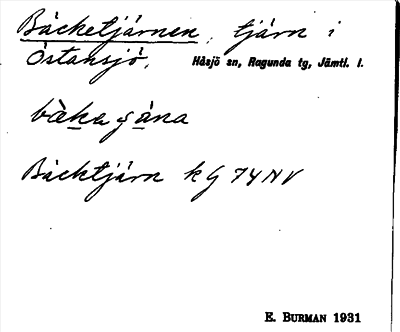 Bäcketjärnen, tjärn i
Östansjö, Håsjö sn, Ragunda tg, Jämtl. l.
Bäcktjärn kG 74 NV
E. BURMAN 1931